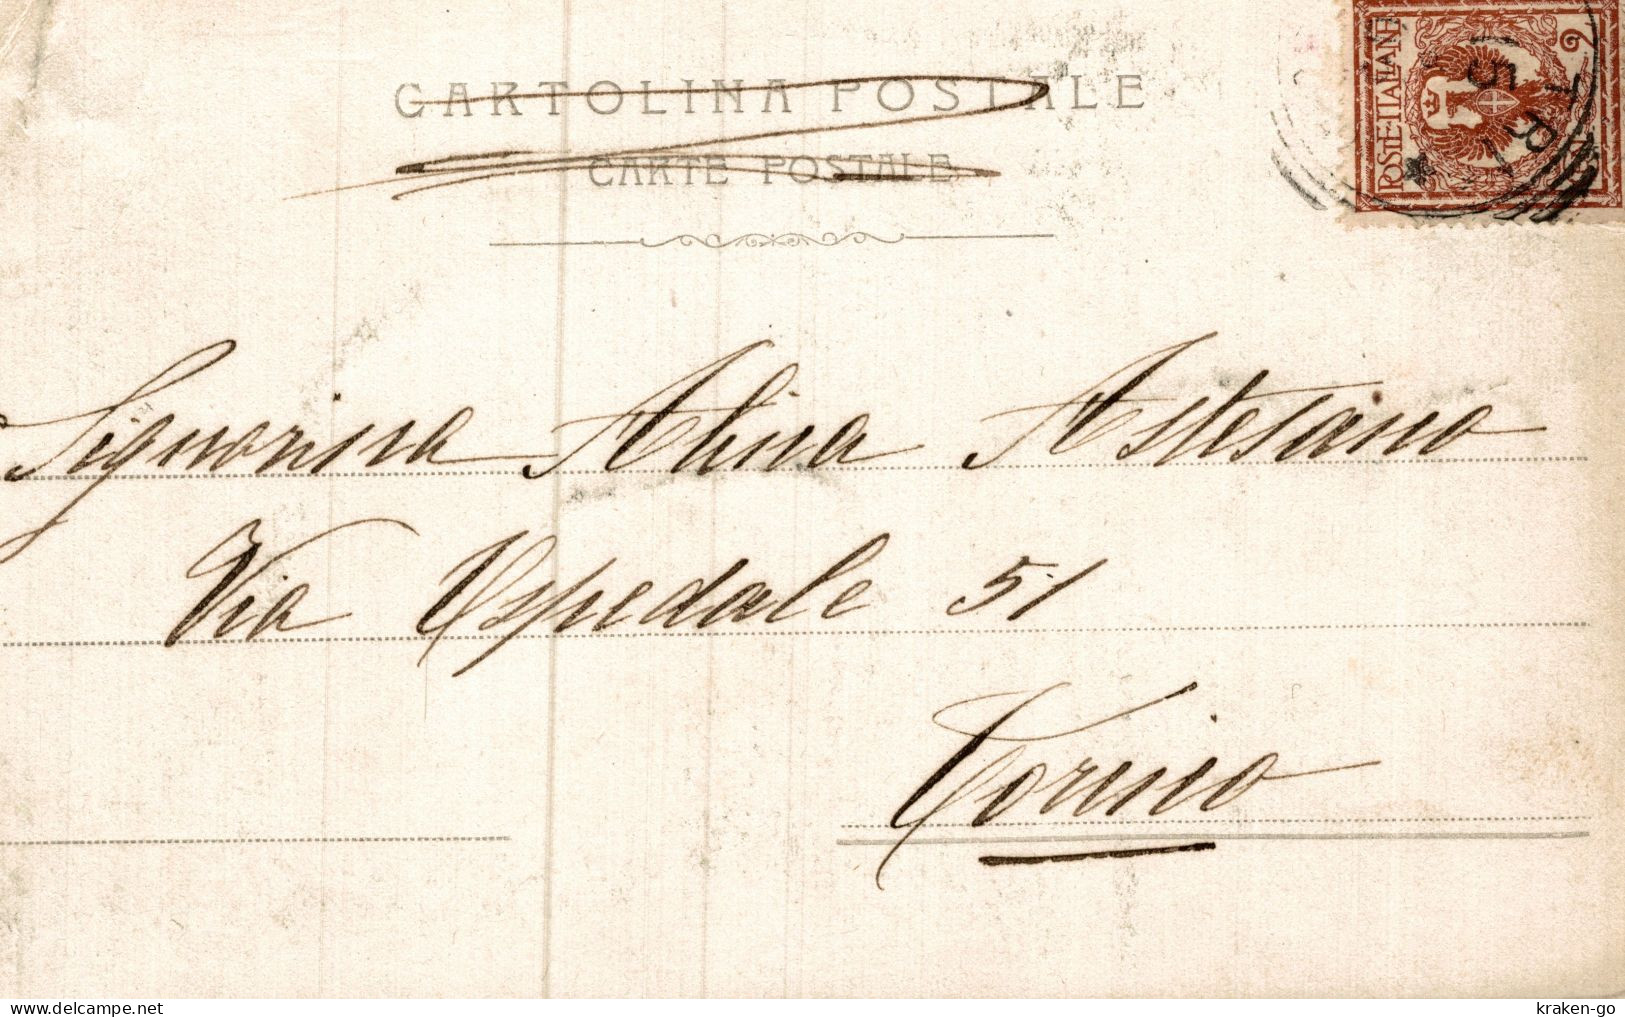 CARTOLINA POSTALE
CARTE POSTALE
POSTE ITALIANE
2
Signorina Alina Astesano
Via Ospedale 51
Torino
delcampe.net
kraken-go